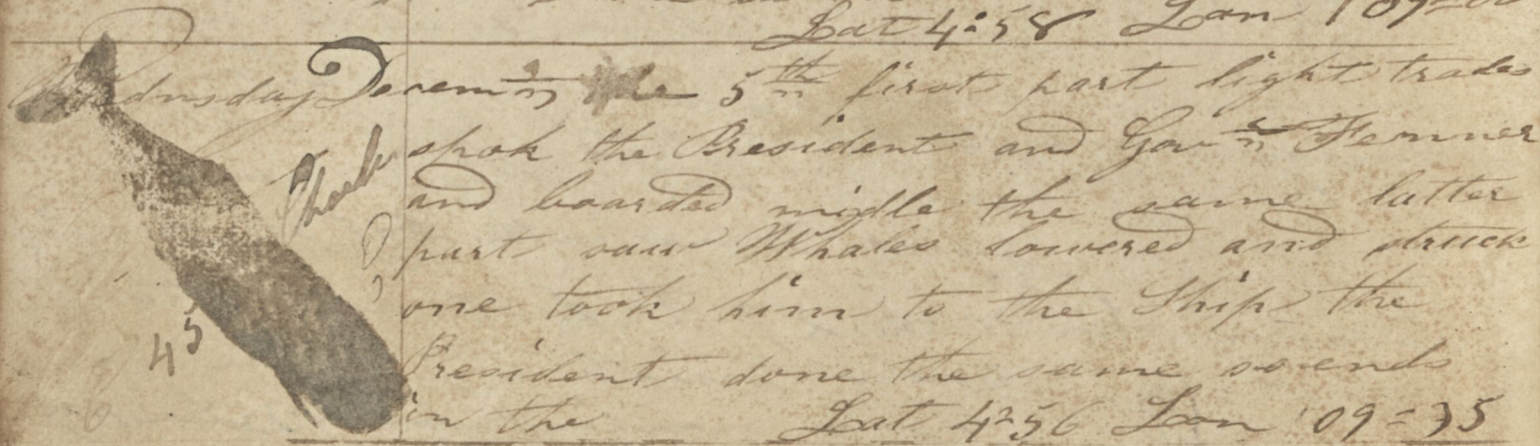 Lat 4:58 Lon 109=00
Wednesday Decem the 5th first part light trades
spok the President and Gov Fennner
and boarded midle the same latter
part saw Whales lowered and struck
one took him to the Ship the
President done the same so ends
in the Lat 4=56 Lon 109=35
45